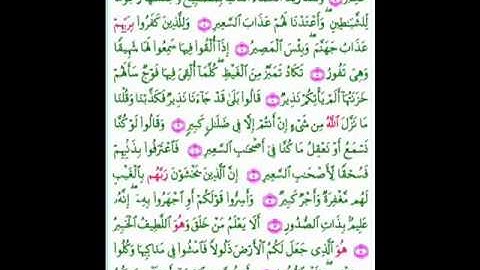 لِّلشَّيَـٰطِينِ ۖ وَأَعْتَدْنَا لَهُمْ عَذَابَ ٱلسَّعِيرِ ۝ وَلِلَّذِينَ كَفَرُوا۟ بِرَبِّهِمْ
عَذَابُ جَهَنَّمَ ۖ وَبِئْسَ ٱلْمَصِيرُ ۝ إِذَآ أُلْقُوا۟ فِيهَا سَمِعُوا۟ لَهَا شَهِيقًا
وَهِىَ تَفُورُ ۝ تَكَادُ تَمَيَّزُ مِنَ ٱلْغَيْظِ ۖ كُلَّمَآ أُلْقِىَ فِيهَا فَوْجٌ سَأَلَهُمْ
خَزَنَتُهَآ أَلَمْ يَأْتِكُمْ نَذِيرٌ ۝ قَالُوا۟ بَلَىٰ قَدْ جَآءَنَا نَذِيرٌ فَكَذَّبْنَا وَقُلْنَا
مَا نَزَّلَ ٱللَّهُ مِن شَىْءٍ إِنْ أَنتُمْ إِلَّا فِى ضَلَـٰلٍ كَبِيرٍ ۝ وَقَالُوا۟ لَوْ كُنَّا
نَسْمَعُ أَوْ نَعْقِلُ مَا كُنَّا فِىٓ أَصْحَـٰبِ ٱلسَّعِيرِ ۝ فَٱعْتَرَفُوا۟ بِذَنۢبِهِمْ
فَسُحْقًا لِّأَصْحَـٰبِ ٱلسَّعِيرِ ۝ إِنَّ ٱلَّذِينَ يَخْشَوْنَ رَبَّهُم بِٱلْغَيْبِ
لَهُم مَّغْفِرَةٌ وَأَجْرٌ كَبِيرٌ ۝ وَأَسِرُّوا۟ قَوْلَكُمْ أَوِ ٱجْهَرُوا۟ بِهِۦٓ ۖ إِنَّهُۥ
عَلِيمٌۢ بِذَاتِ ٱلصُّدُورِ ۝ أَلَا يَعْلَمُ مَنْ خَلَقَ وَهُوَ ٱللَّطِيفُ ٱلْخَبِيرُ
۝ هُوَ ٱلَّذِى جَعَلَ لَكُمُ ٱلْأَرْضَ ذَلُولًا فَٱمْشُوا۟ فِى مَنَاكِبِهَا وَكُلُوا۟